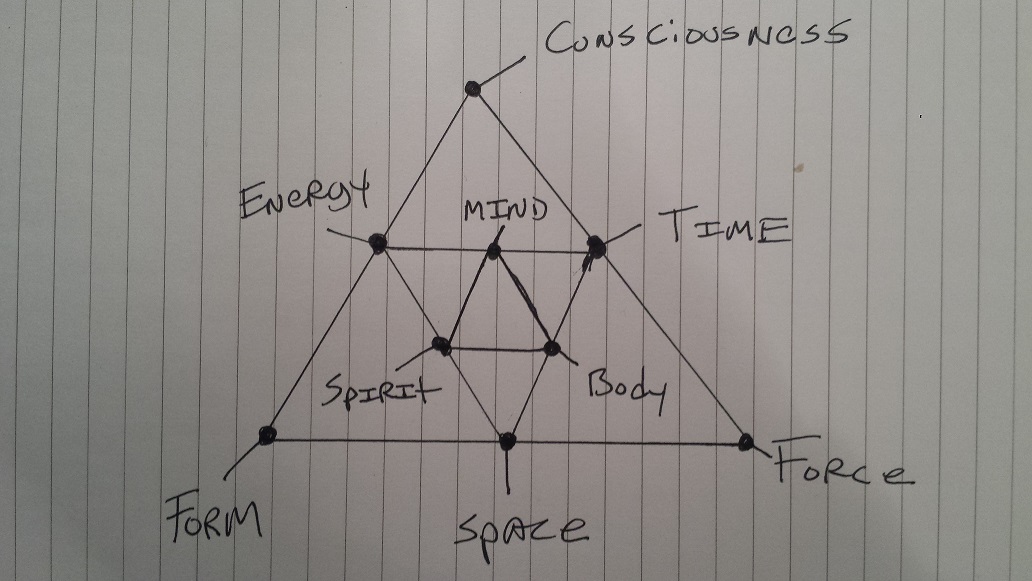 Consciousness
Energy
MIND
TIME
Spirit
Body
Form
Space
Force